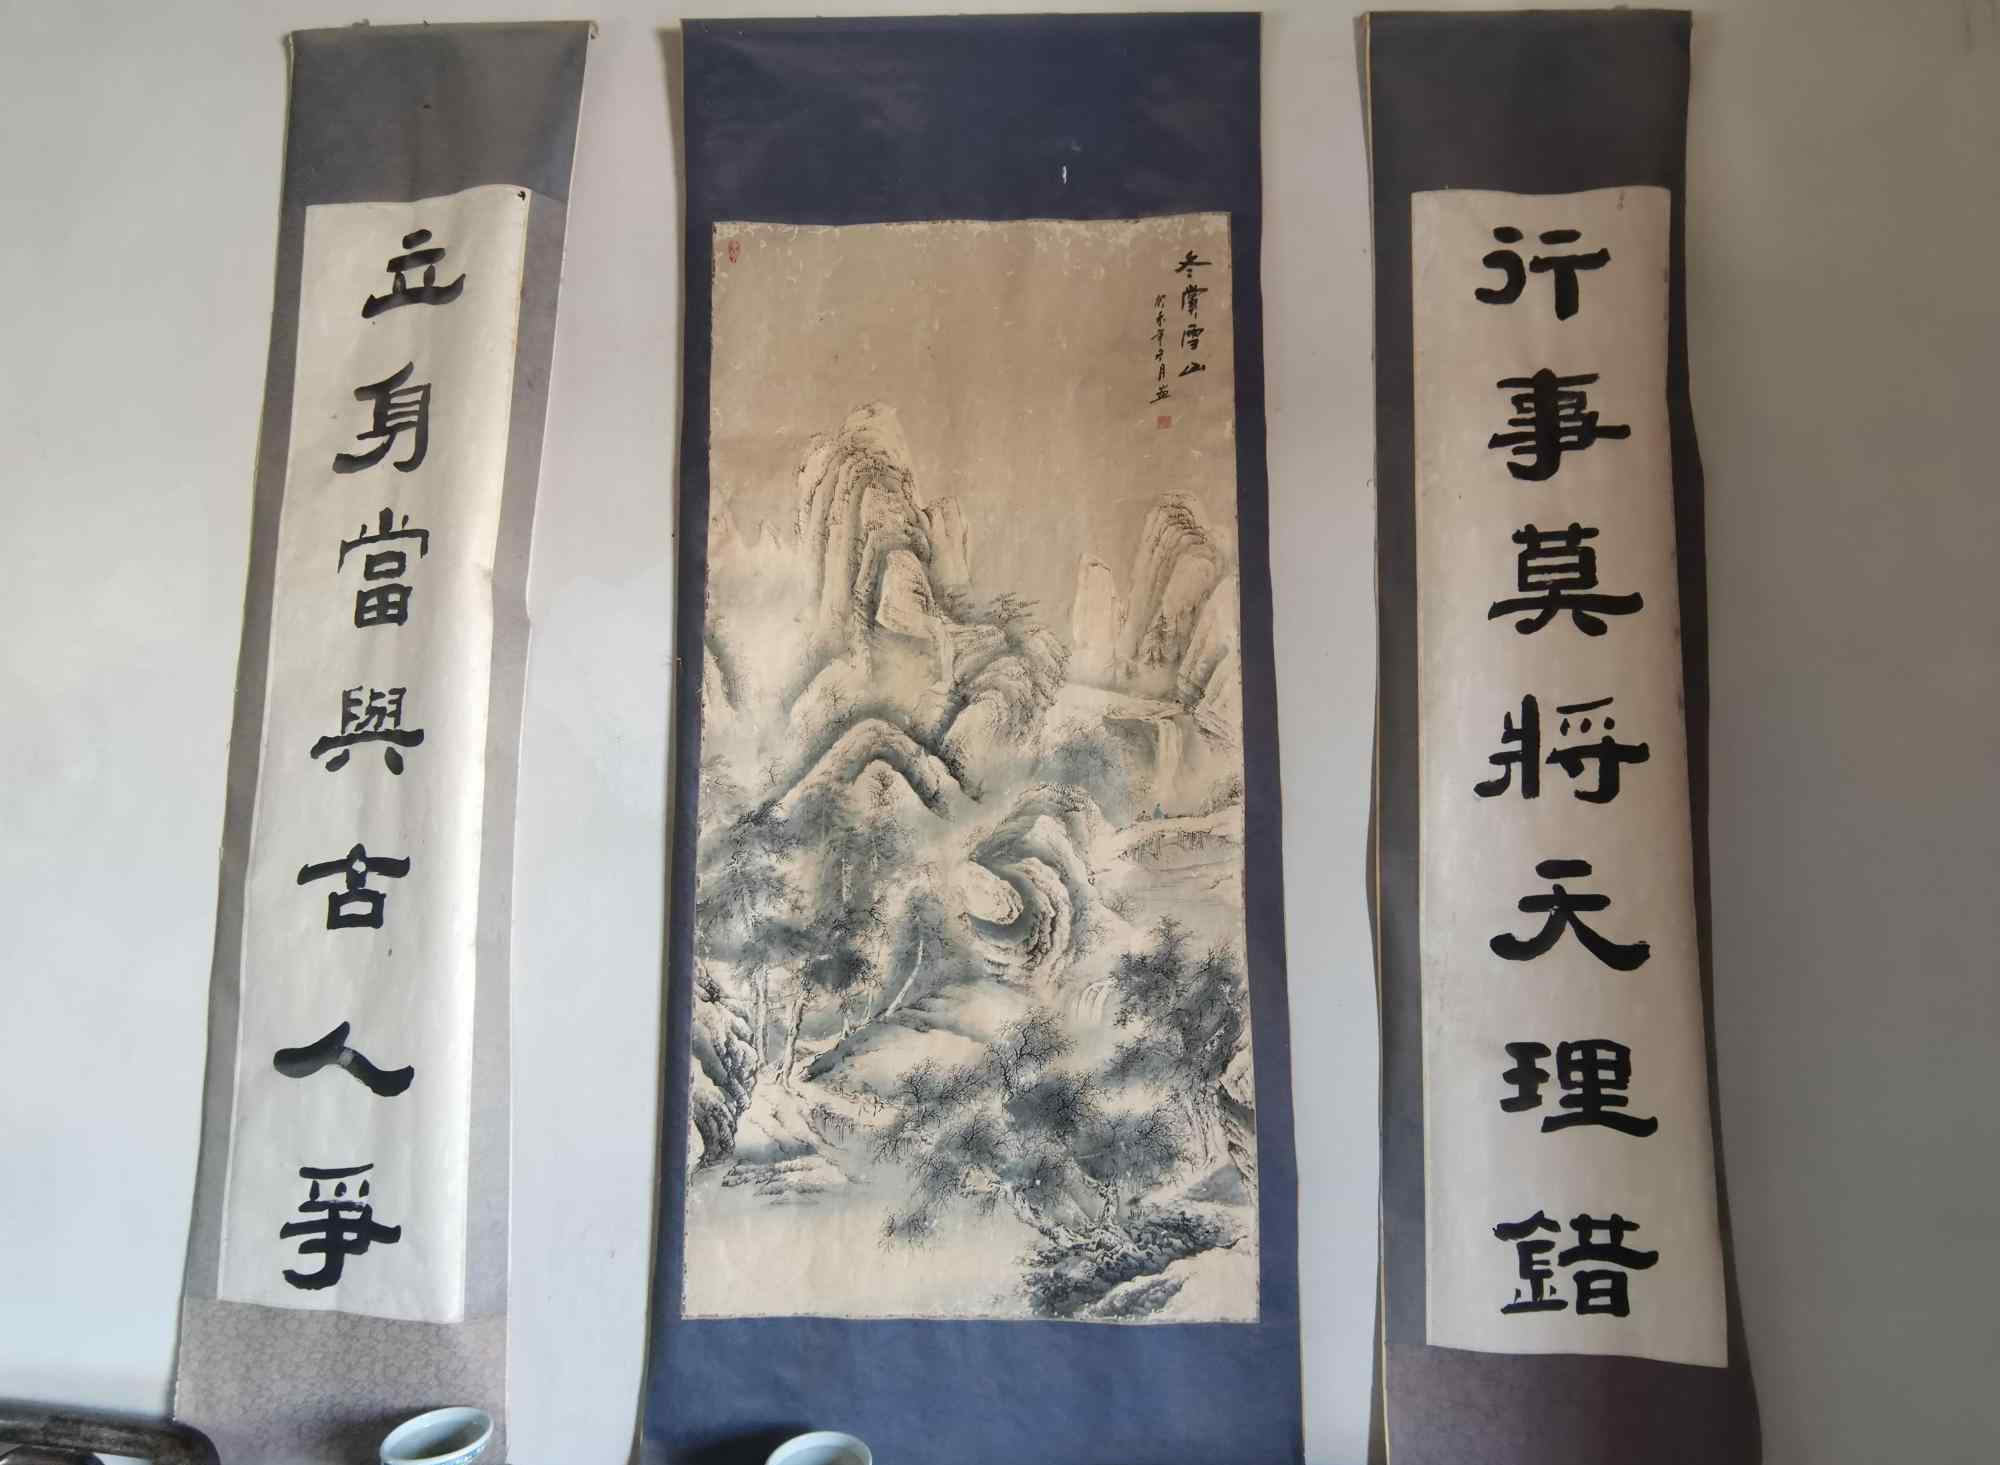 行事莫將天理錯
冬賞雪山
癸未年
月畫
立身當與古人爭